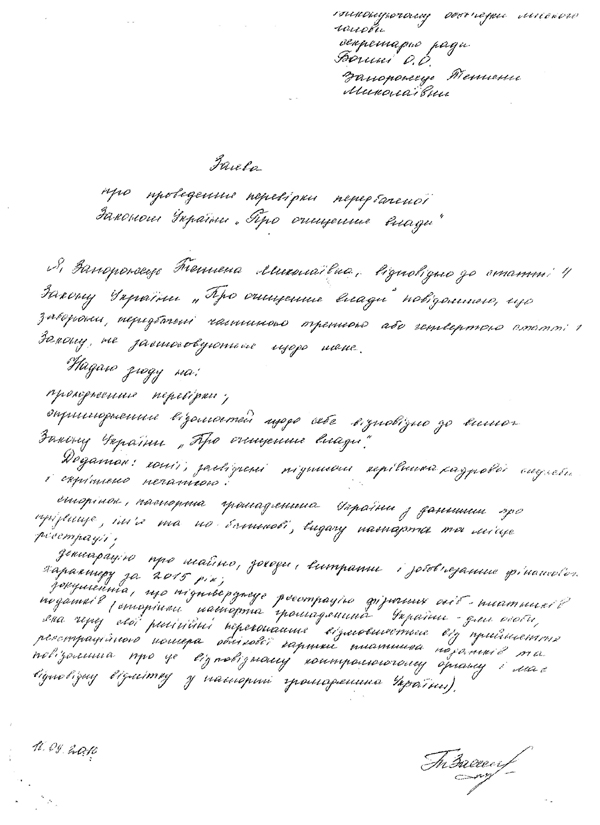 Виконуючому обов'язки міського
голови
секретарю ради
О.О.
Запорожець Тетяни
Миколаївни
Заява
про проведення перевірки передбаченої
Законом України „Про очищення влади"
Я, Запорожець Тетяна Миколаївна, відповідно до статті 4
Закону України „Про очищення влади" повідомляю, що
заборони, передбачені частиною третьою або четвертою статті 1
Закону, не застосовуються щодо мене.
Надаю згоду на:
проходження перевірки;
оприлюднення відомостей щодо себе відповідно до вимог
Закону України „Про очищення влади".
Додаток: копії, засвідчені підписом керівника кадрової служби
і скріплено печаткою:
сторінок, паспорта громадянина України з даними про
прізвище, ім'я та по батькові, видачу паспорта та місце
реєстрації;
декларацію про майно, доходи, витрати і зобов'язання фінансового
характеру за 2015 рік;
документа, що підтверджує реєстрацію фізичних осіб - платників
податків (сторінки паспорта громадянина України - для особи,
яка через свої релігійні переконання відмовляється від прийняття
реєстраційного номера облікової картки платника податків та
повідомила про це відповідному контролюючому органу і має
відповідну відмітку у паспорті громадянина України).
.04.2016